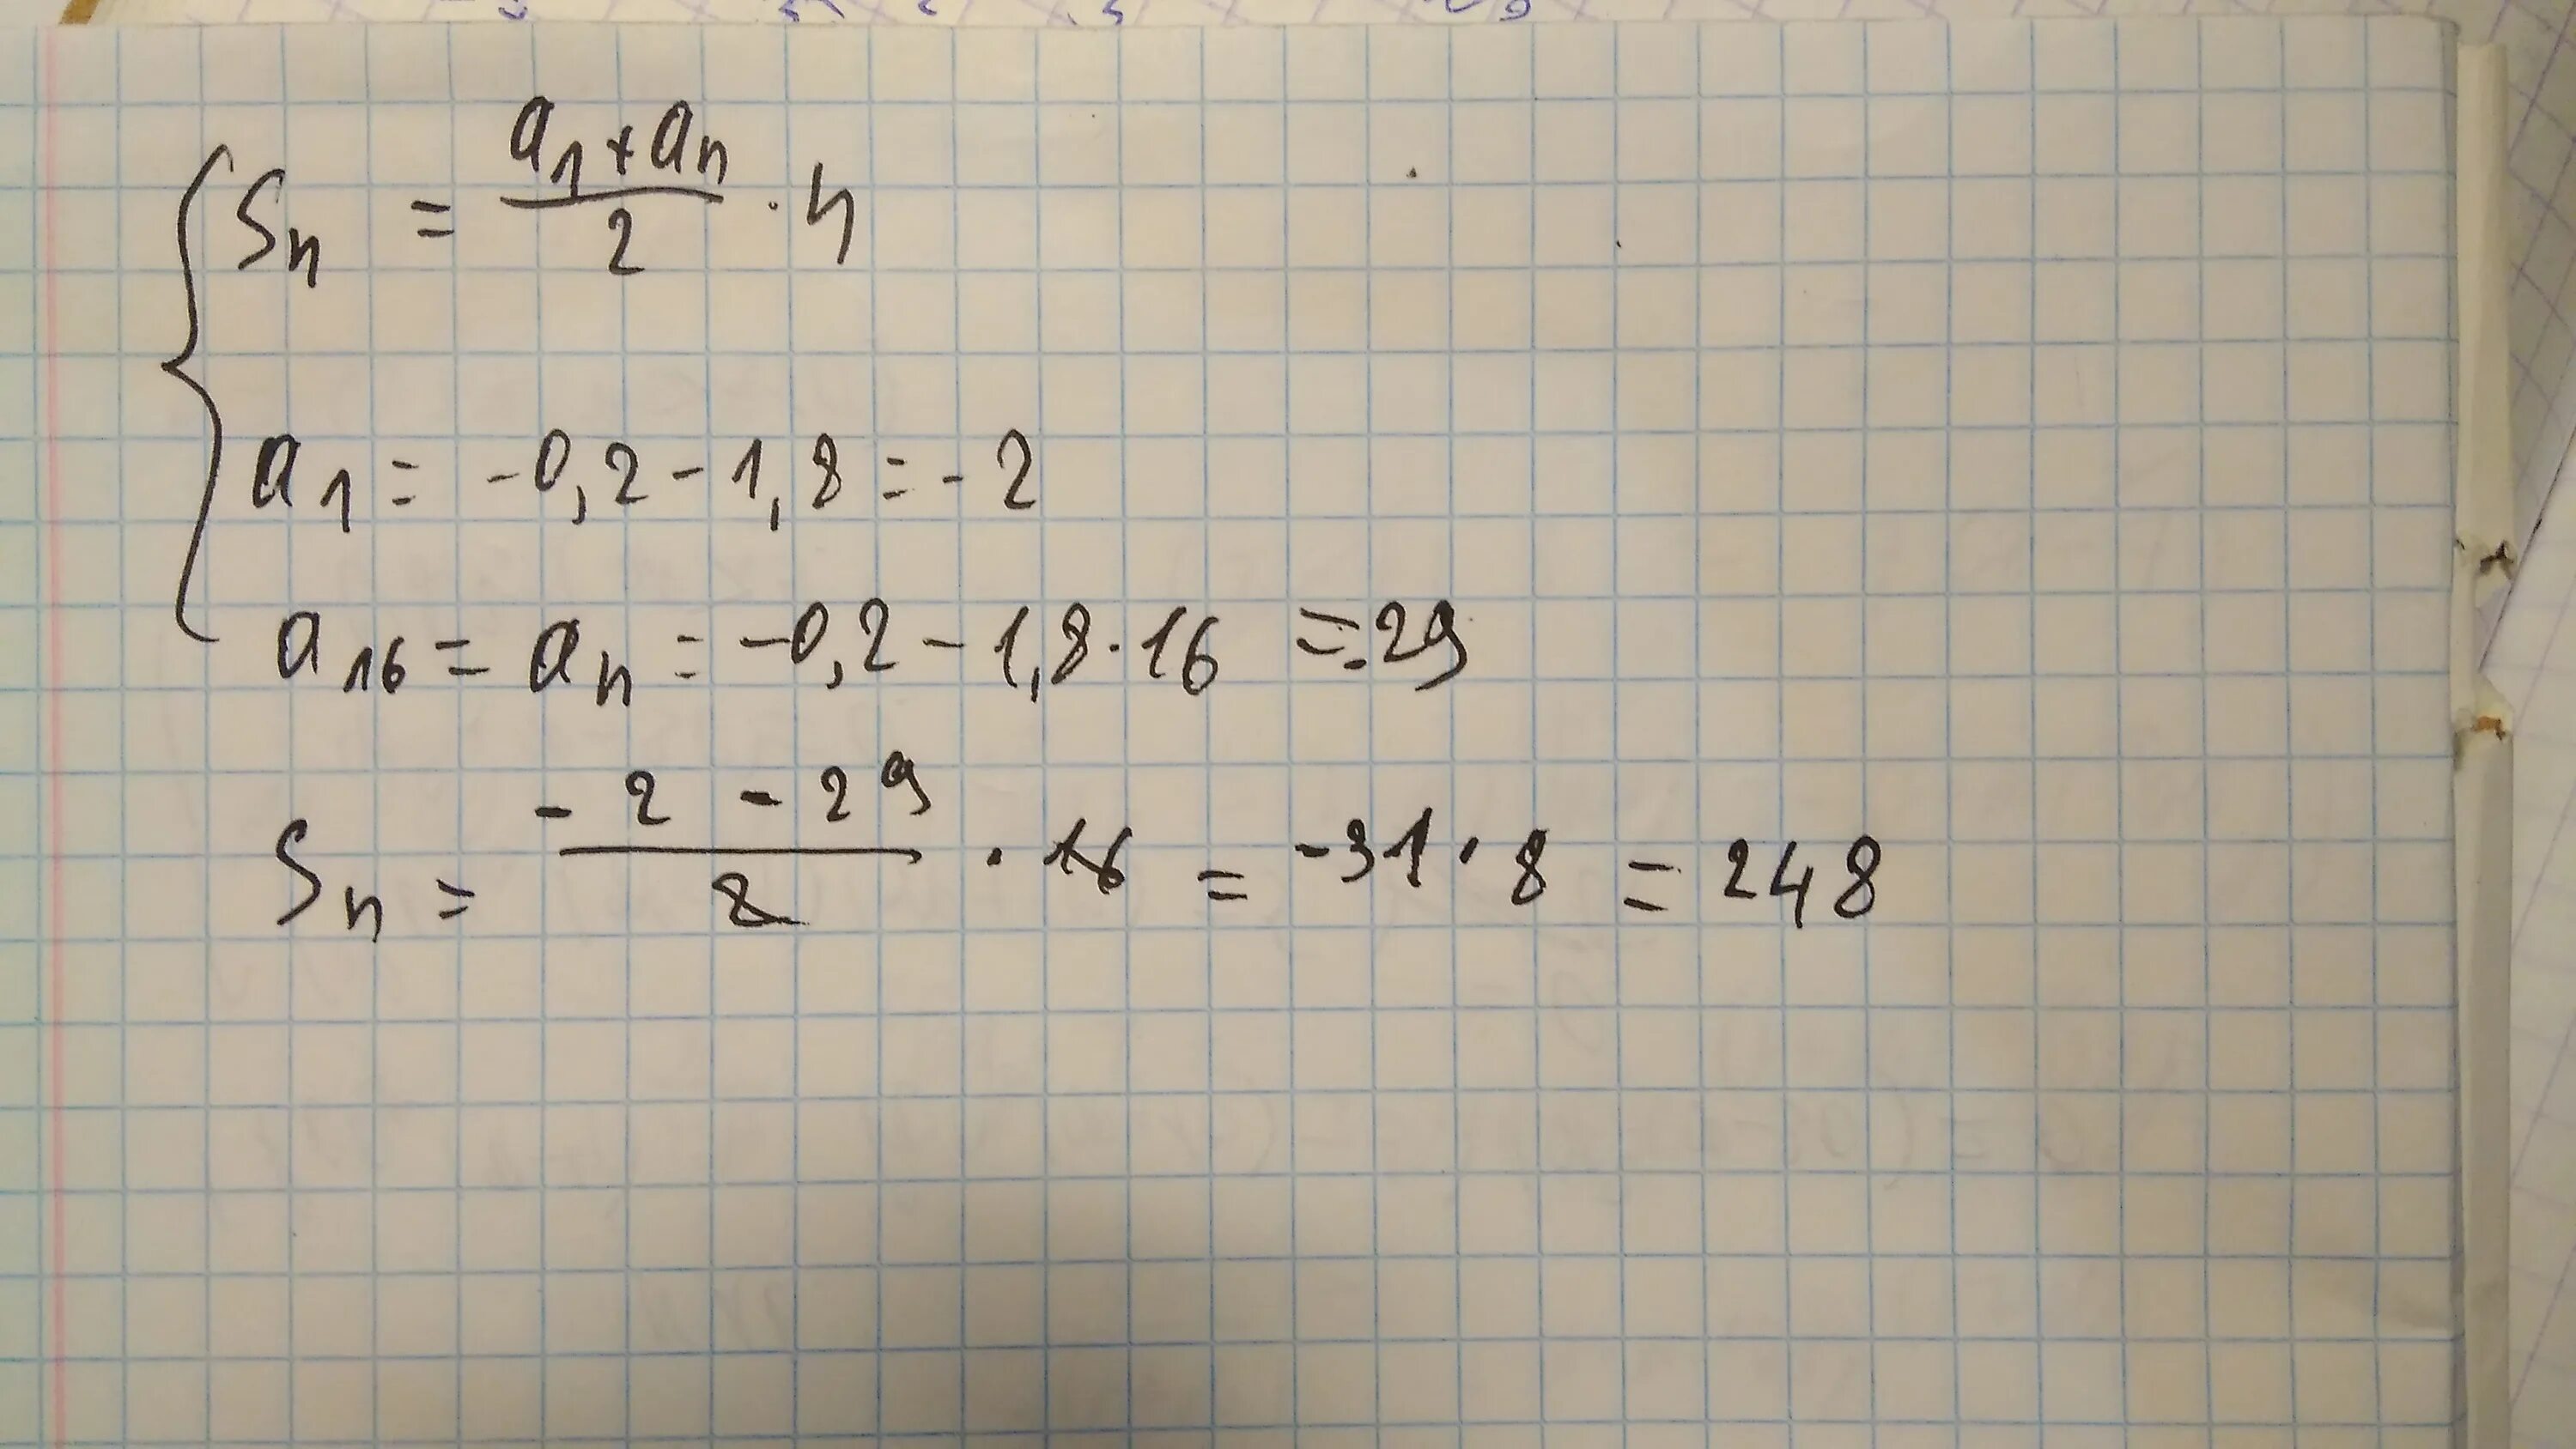 Sn = (a1 + an)/2 · n
a1 = -0,2 - 1,8 = -2
a16 = an = -0,2 - 1,8 · 16 = -29
Sn = (-2 -29)/2 · 16 = -31 · 8 = 248